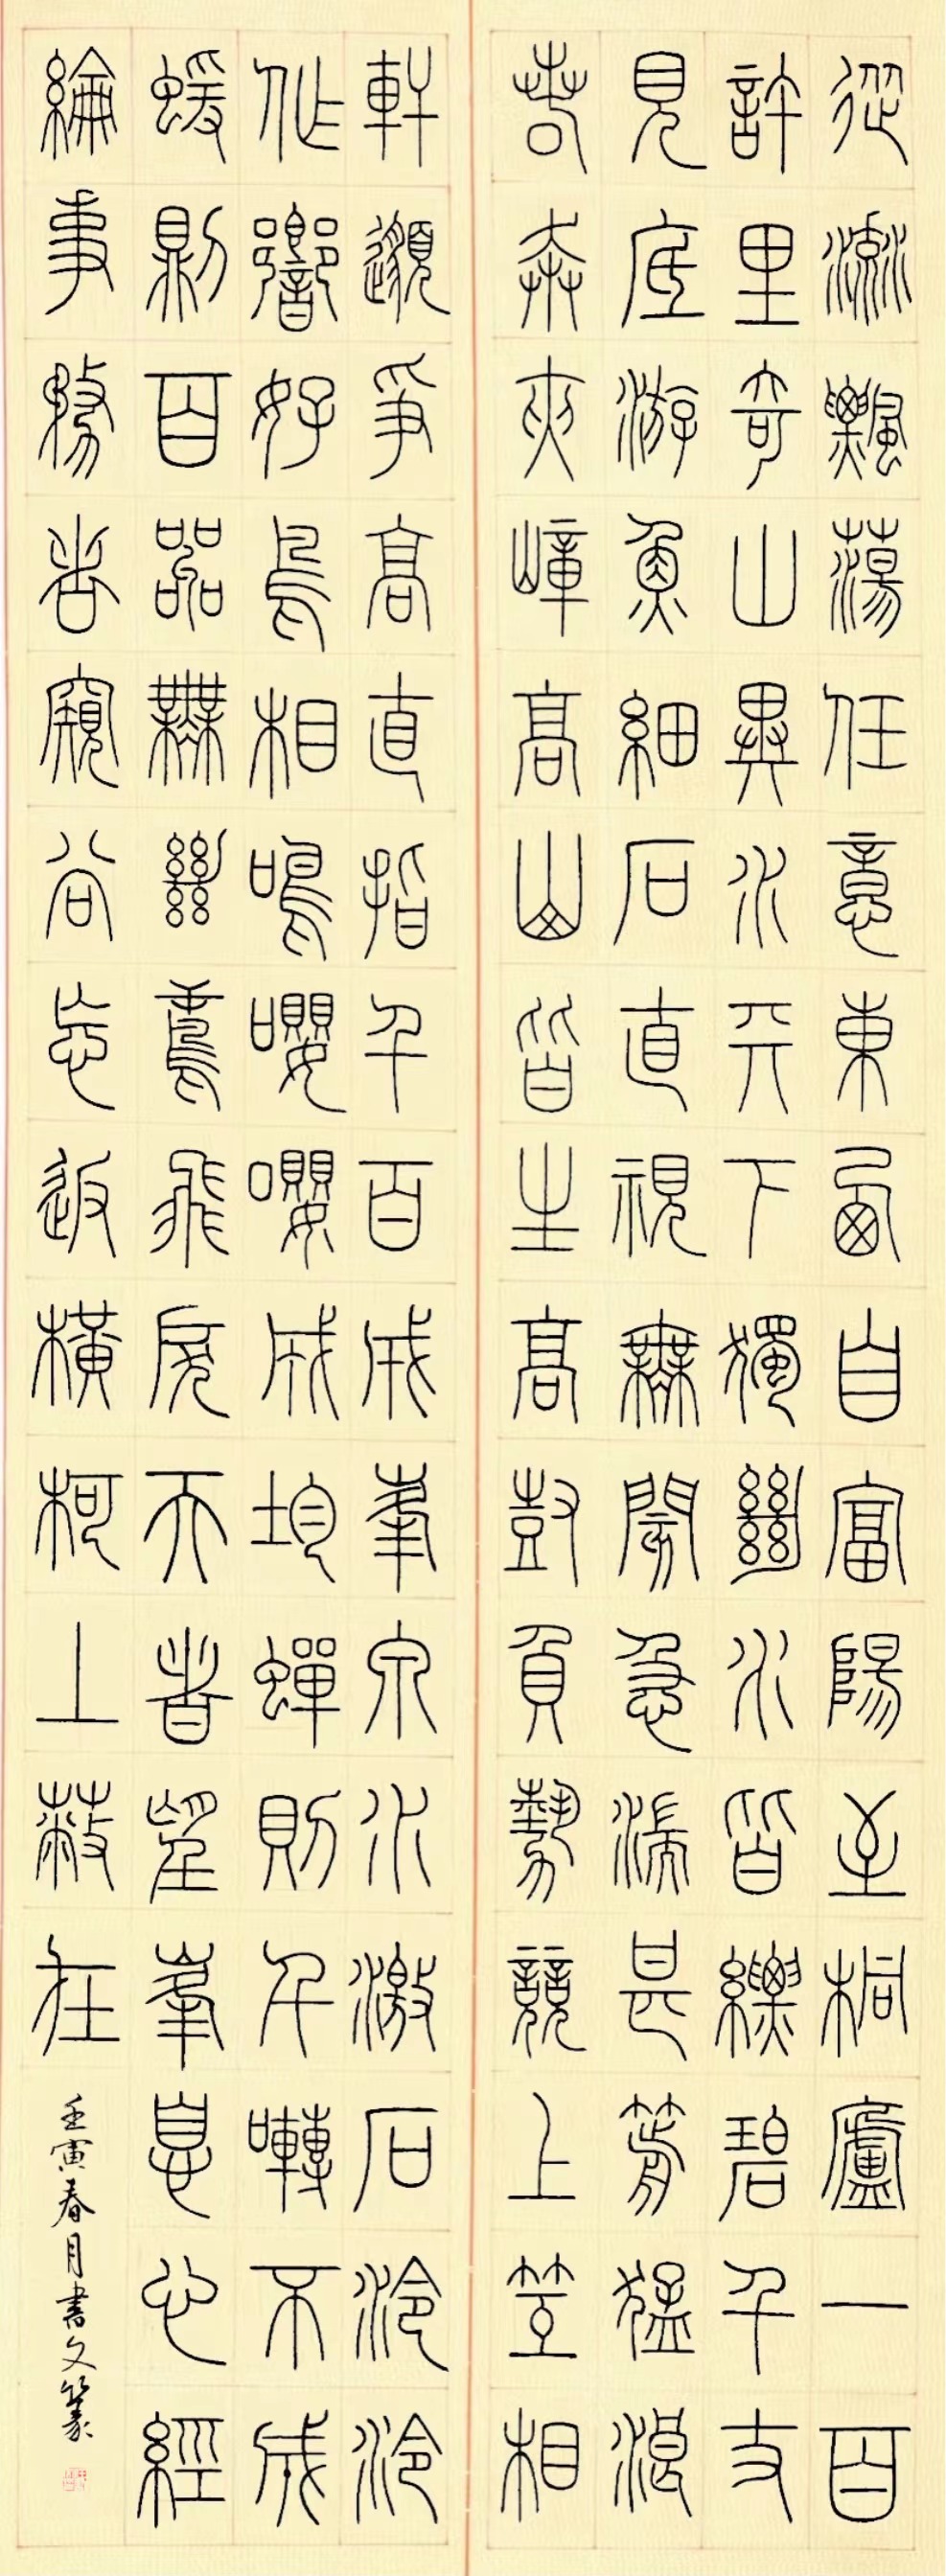 從流飄蕩任意東西自富陽至桐廬一百
許里奇山異水天下獨絕水皆縹碧千丈
見底游魚細石直視無閡急湍甚箭猛浪
若奔夾嶂高山皆生高尌負勢競上互相
軒邈爭高直指千百成峯泉水激石泠泠
作響好鳥相鳴嚶嚶成均蟬則千囀不成
蝯則百嘂無絕鳶飛戾天者望峯息心經
綸事務者窺谷忘返橫柯上蔽在
壬寅春月書文篆